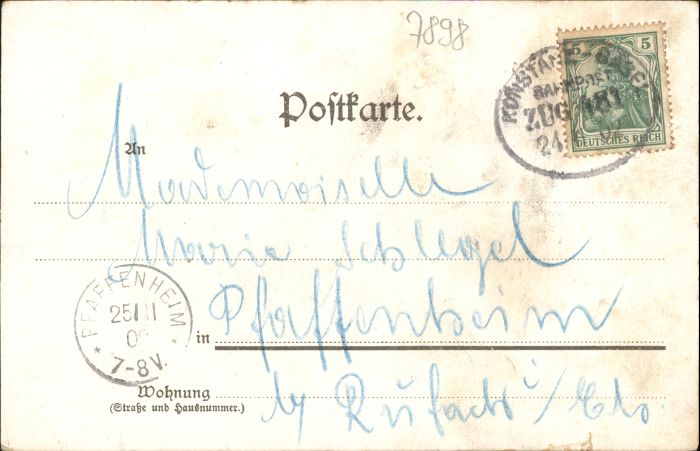 7898
5 5
DEUTSCHES REICH
KONSTANZ
BAHNPOST
ZUG 481
24
Postkarte.
An
Mademoiselle
Marie Schlegel
PFAFFENHEIM
25 III
7-8V.
in Pfaffenheim
Wohnung
(Straße und Hausnummer.)
by Rufach i/Els.